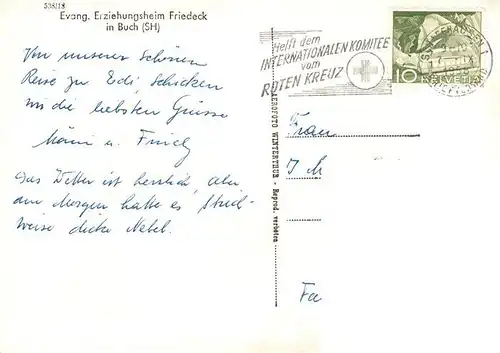 538/18
Evang. Erziehungsheim Friedeck
in Buch (SH)
Von unserer schönen
Reise zu Edi, schicken
wir die liebsten Grüsse
u.
Das Wetter ist herrlich, aber
den Morgen hatte es Strich-
weise dicke Nebel.
Helft dem
INTERNATIONALEN KOMITEE
vom
ROTEN KREUZ
10
HELVETIA
AEROFOTO WINTERTHUR - Reprod. verboten
Frau
J M
Fa